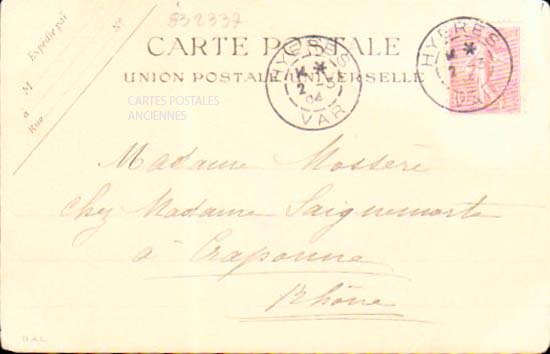 Expédié par
M
à
Rue
N°
832337
CARTE POSTALE
UNION POSTALE UNIVERSELLE
CARTES POSTALES
ANCIENNES
HYERES
*
2 -3
04
VAR
HYERES
*
2
Madame Mossère
chez Madame Saiguemorte
à Craponne
Rhône